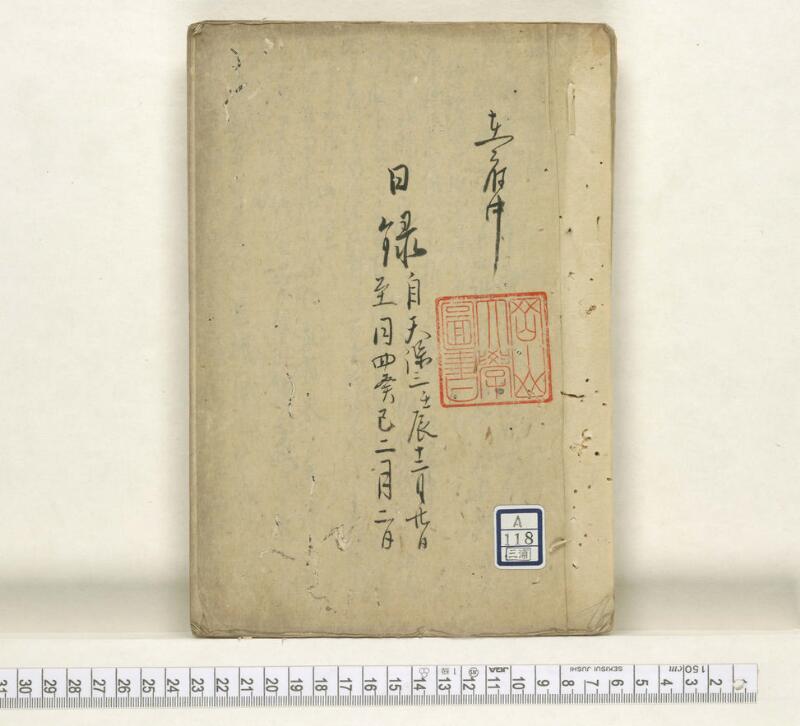 在府中
目録
自天保三壬辰十二月廿日
至同四癸巳二月二日
岡山
大学
図書
A
118
三浦
31 30 29 28 27 26 25 24 23 22 21 20 19 18 17 16 15 14 13 12 11 10 9 8 7 6 5 4 3 2 1
150cm
SEKISUI JUSHI
JQA